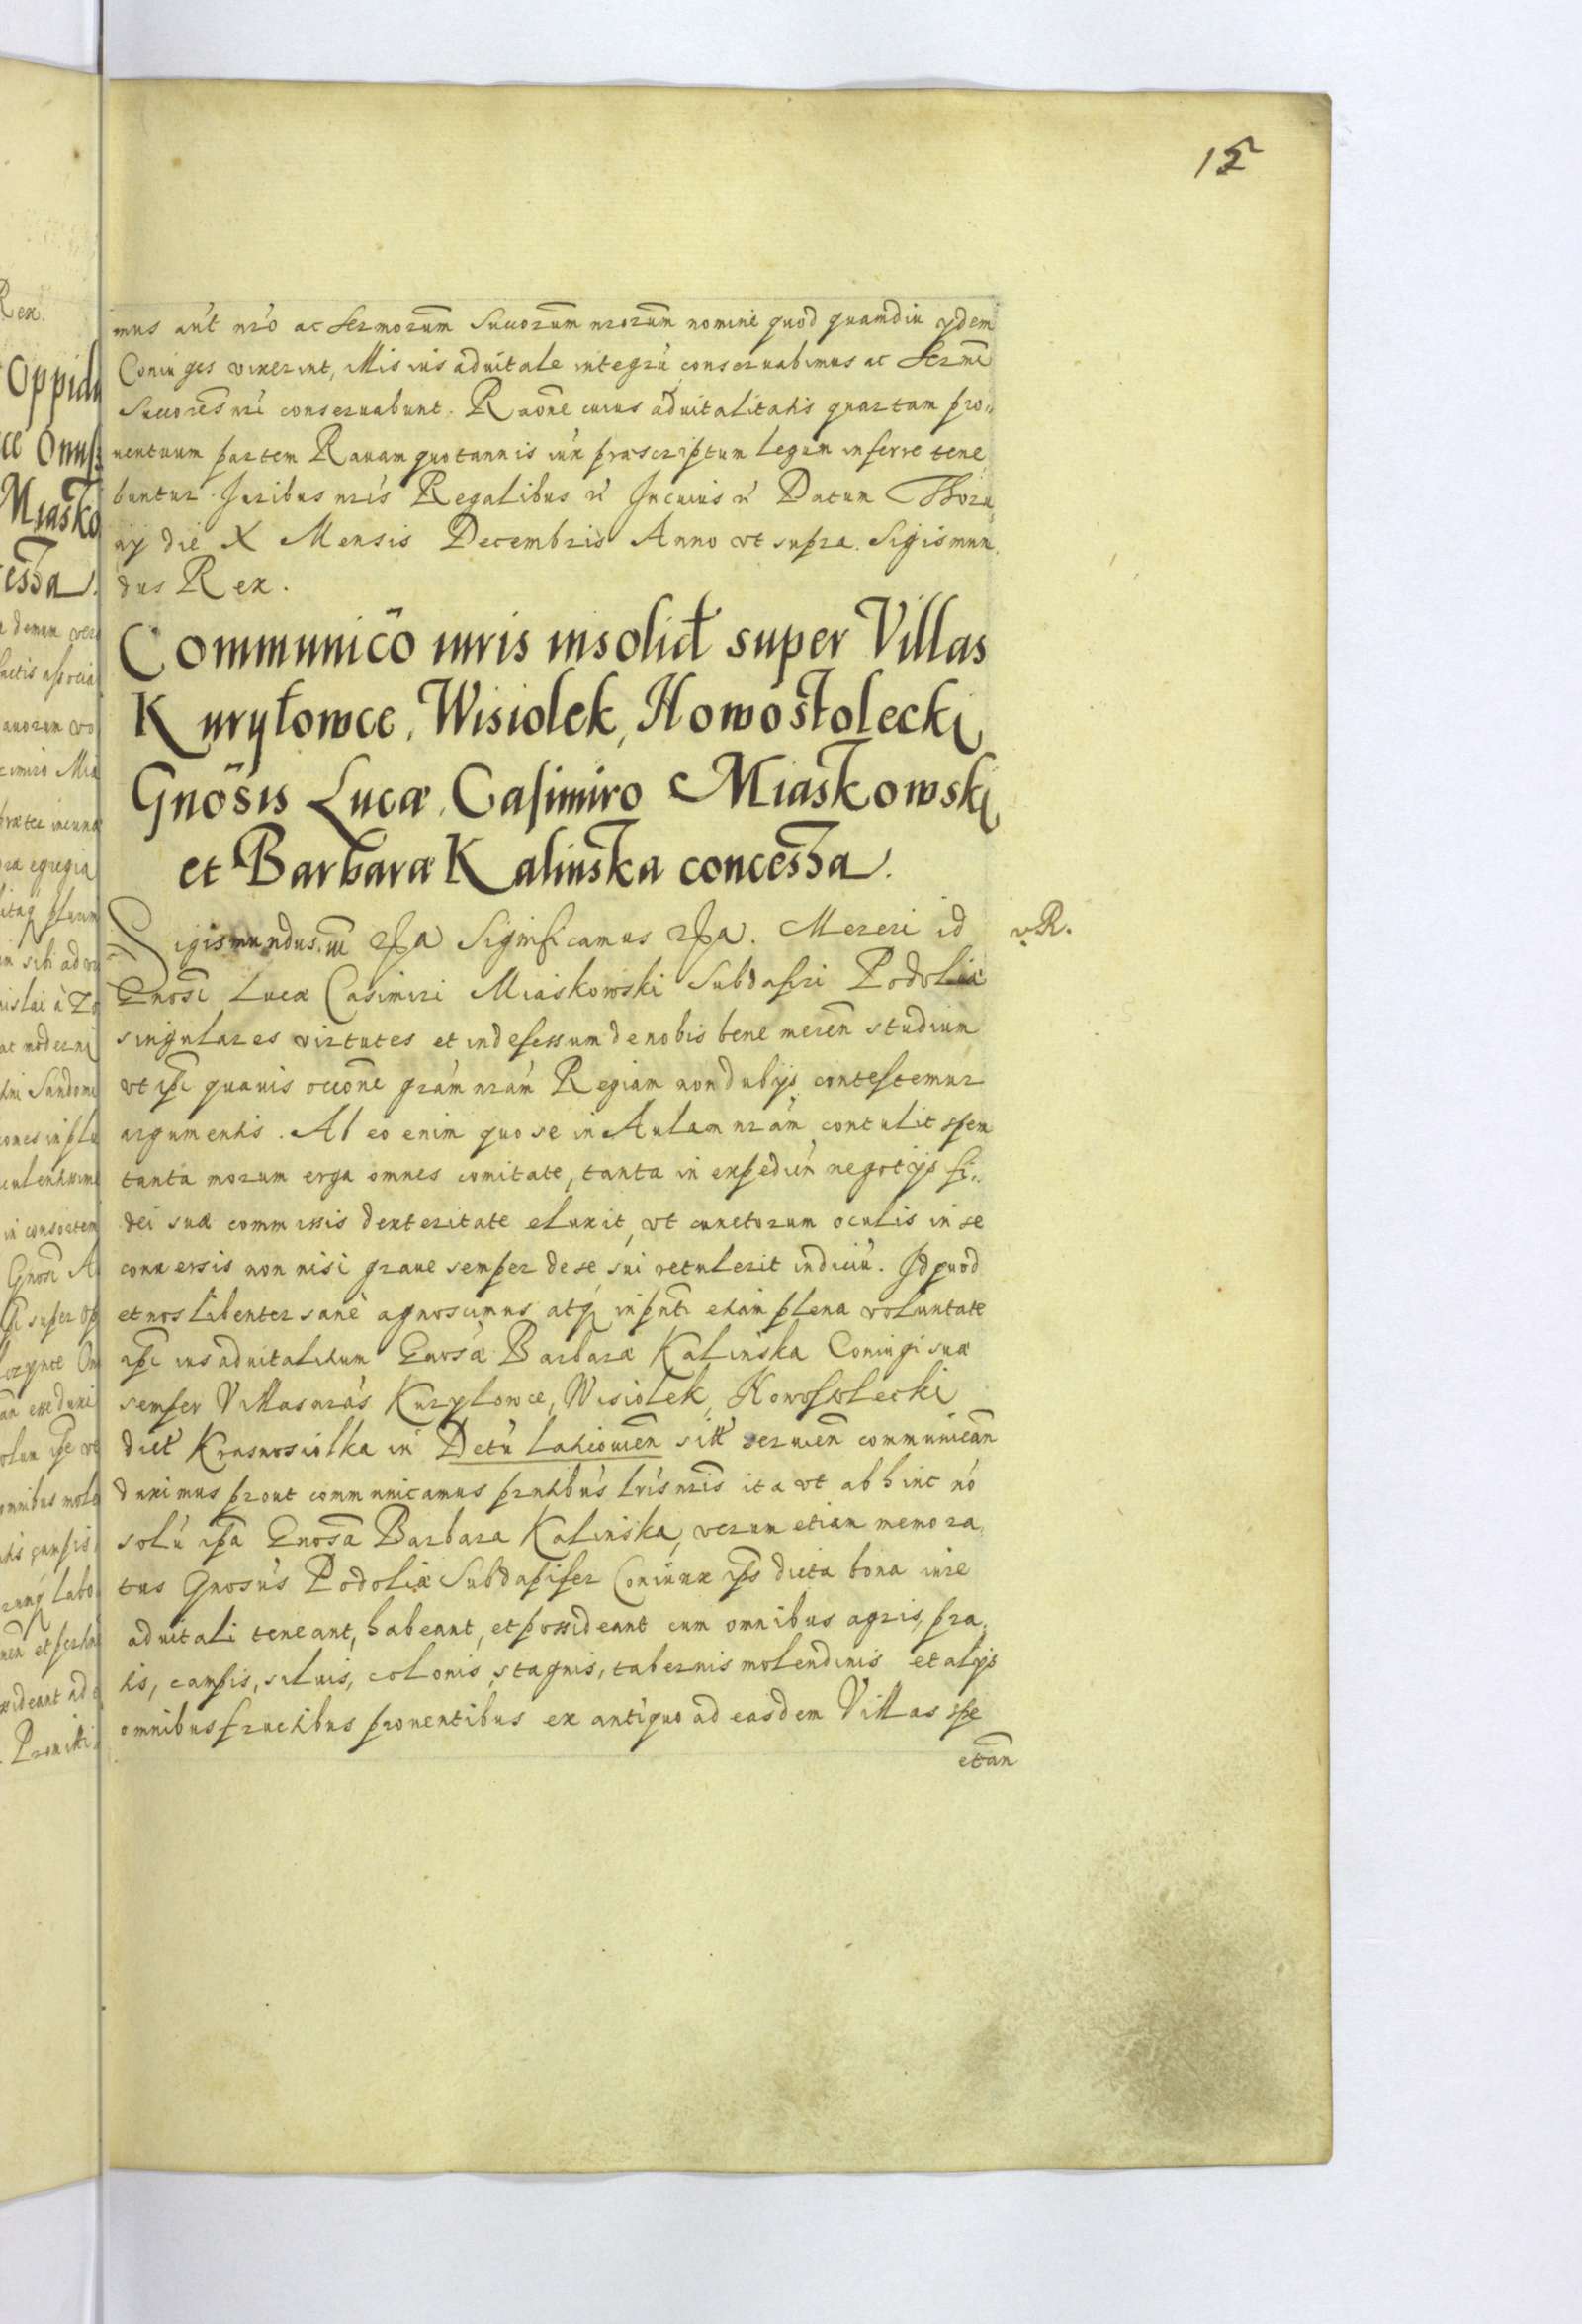 15
mus aut nro ac Sermorum Succorum nrorum nomine quod quamdiu ydem
Coniuges vixerint, illis ius aduitale integrũ conseruabimus ac Sermi
Succores nri conseruabunt. Raone cuius aduitalitatis quartam pro„
uentuum partem Rauam quotannis iux praescriptum legum inferre tene„
buntur. Juribus nris Regalibus rẽ Jncuius rẽ Datum Thoru„
nij die X Mensis Decembris Anno vt supra. Sigismun„
dus Rex.
Communicõ iuris insolid super Villas
Kuryłowce, Wisiolek, Howostolecki
Gnosis Lucæ, Casimiro Miaskowski
et Barbaræ Kalinska concessa.
Sigismundus III Significamus Mereri id
v.R.
Gnosi Lucæ Casimiri Miaskowski Subdapiri Podoliæ
singulares virtutes et indefessum de nobis bene meren studium
vt ipsi quauis occone grãm nrãm Regiam non dubijs contestemur
argumentis. Ab eo enim quo se in Aulam nrãm contulit
tanta morum erga omnes comitate, tanta in expedien negotijs fi„
dei suæ commissis dexteritate eluxit, vt cunctorum oculis in se
conuersis non nisi graue semper de se sui retulerit indiciũ. Jd quod
et nos libenter sanè agnoscimus atq inpnti etiam plena voluntate
ipsi ius aduitalitium Gnosæ Barbaræ Kalinska Coniugi suæ
semper Villas nrãs Kurylowce, Wisiolek, Howosolecki
dict Krasnosiolka in Dctũ Laticouien sitt seruien communican
duximus prout communicamus pntibus lris nris ita vt abhinc nõ
solũ ipsa Gnosa Barbara Kalinska, verum etiam memora„
tus Gnosus Podoliæ Subdapifer Coniunx ipsius dicta bona iure
aduitali teneant, habeant, et possideant cum omnibus agris, pra„
tis, campis, siluis, colonis, stagnis, tabernis molendinis et alijs
omnibus fructibus prouentibus ex antiquo ad easdem Villas spe
ctan